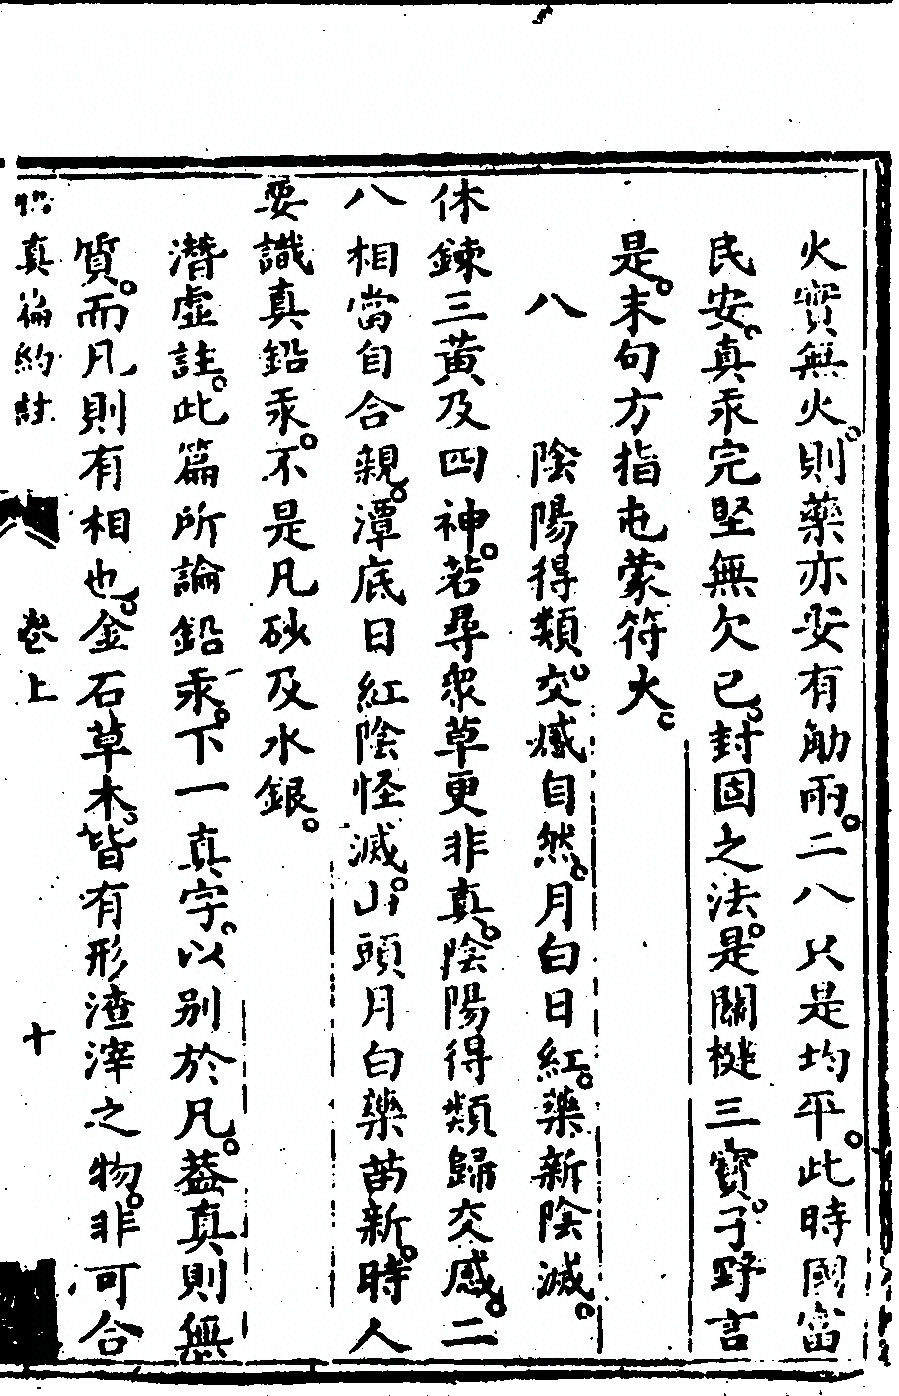 火實無火。則藥亦安有觔兩。二八只是均平。此時國富
民安。真汞完堅無欠已。封固之法。是關楗三寶。子野言
是。末句方指屯蒙符火。
八　陰陽得類交。感自然。月白日紅。藥新陰滅。
休鍊三黃及四神。若尋衆草更非真。陰陽得類歸交感。二
八相當自合親。潭底日紅陰怪滅。山頭月白藥苗新。時人
要識真鉛汞。不是凡砂及水銀。
潛虛註。此篇所論鉛汞。下一真字。以別於凡。葢真則無
質。而凡則有相也。金石草木。皆有形渣滓之物。非可合
悟真篇約註　卷上　十